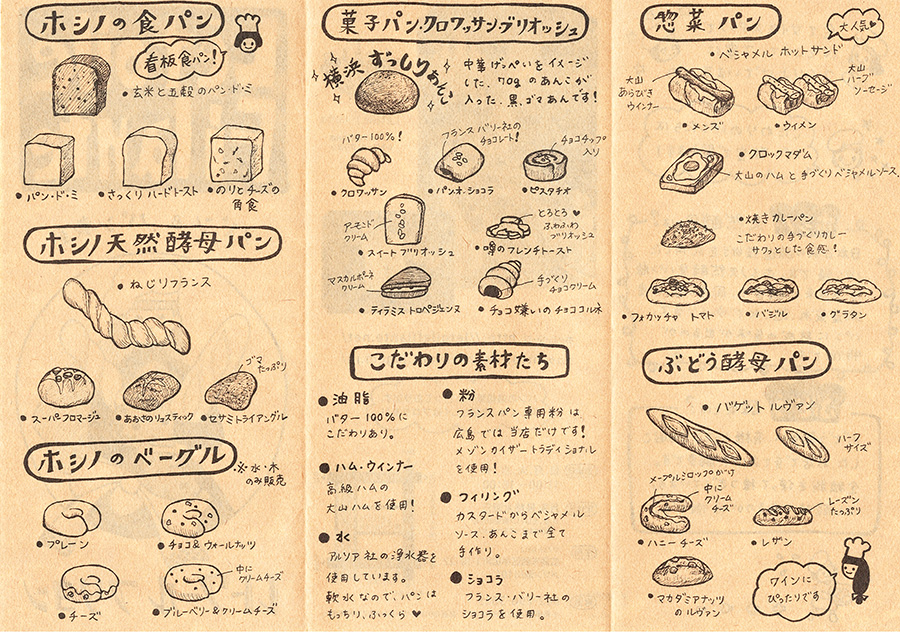 ホシノの食パン
看板食パン!
・玄米と五穀のパン・ド・ミ
・パン・ド・ミ
・さっくりハードトースト
・のりとチーズの
角食
ホシノ天然酵母パン
・ねじりフランス
・スーパーフロマージュ
・あおさのリュスティック
ゴマ
たっぷり
・セサミトライアングル
ホシノのベーグル
※水・木
のみ販売
・プレーン
・チョコ&ウォールナッツ
・チーズ
中に
クリームチーズ
・ブルーベリー&クリームチーズ
菓子パン・クロワッサン・ブリオッシュ
横浜ずっしりあんぱん
中華げっぺいをイメージ
した、70gのあんこが
入った、黒ゴマあんです!
バター100%!
・クロワッサン
フランスバリー社の
チョコレート!
・パンオ・ショコラ
チョコチップ
入り
・ピスタチオ
アーモンド
クリーム
・スイートブリオッシュ
とろとろ♥
ふわふわ
ブリオッシュ
・噂のフレンチトースト
マスカルポーネ
クリーム
・ティラミストロペジェンヌ
手づくり
チョコクリーム
・チョコ嫌いのチョココルネ
こだわりの素材たち
●油脂
バター100%に
こだわりあり。
●ハム・ウインナー
高級ハムの
大山ハムを使用!
●水
アルソア社の浄水器を
使用しています。
軟水なので、パンは
もっちり、ふっくら♥
●粉
フランスパン専用粉は
広島では当店だけです!
メゾンカイザートラディショナル
を使用!
●フィリング
カスタードからベシャメル
ソース、あんこまで全て
手作り。
●ショコラ
フランス・バリー社の
ショコラを使用。
惣菜パン
大人気♥
・ベシャメルホットサンド
大山
あらびき
ウインナー
・メンズ
大山
ハーブ
ソーセージ
・ウィメン
・クロックマダム
大山のハムと手づくりベシャメルソース。
・焼きカレーパン
こだわりの手づくりカレー
サクッとした食感!
・フォカッチャ トマト
・バジル
・グラタン
ぶどう酵母パン
・バゲットルヴァン
ハーフ
サイズ
メープルシロップがけ
中に
クリーム
チーズ
・ハニーチーズ
レーズン
たっぷり
・レザン
・マカダミアナッツ
のルヴァン
ワインに
ぴったりです